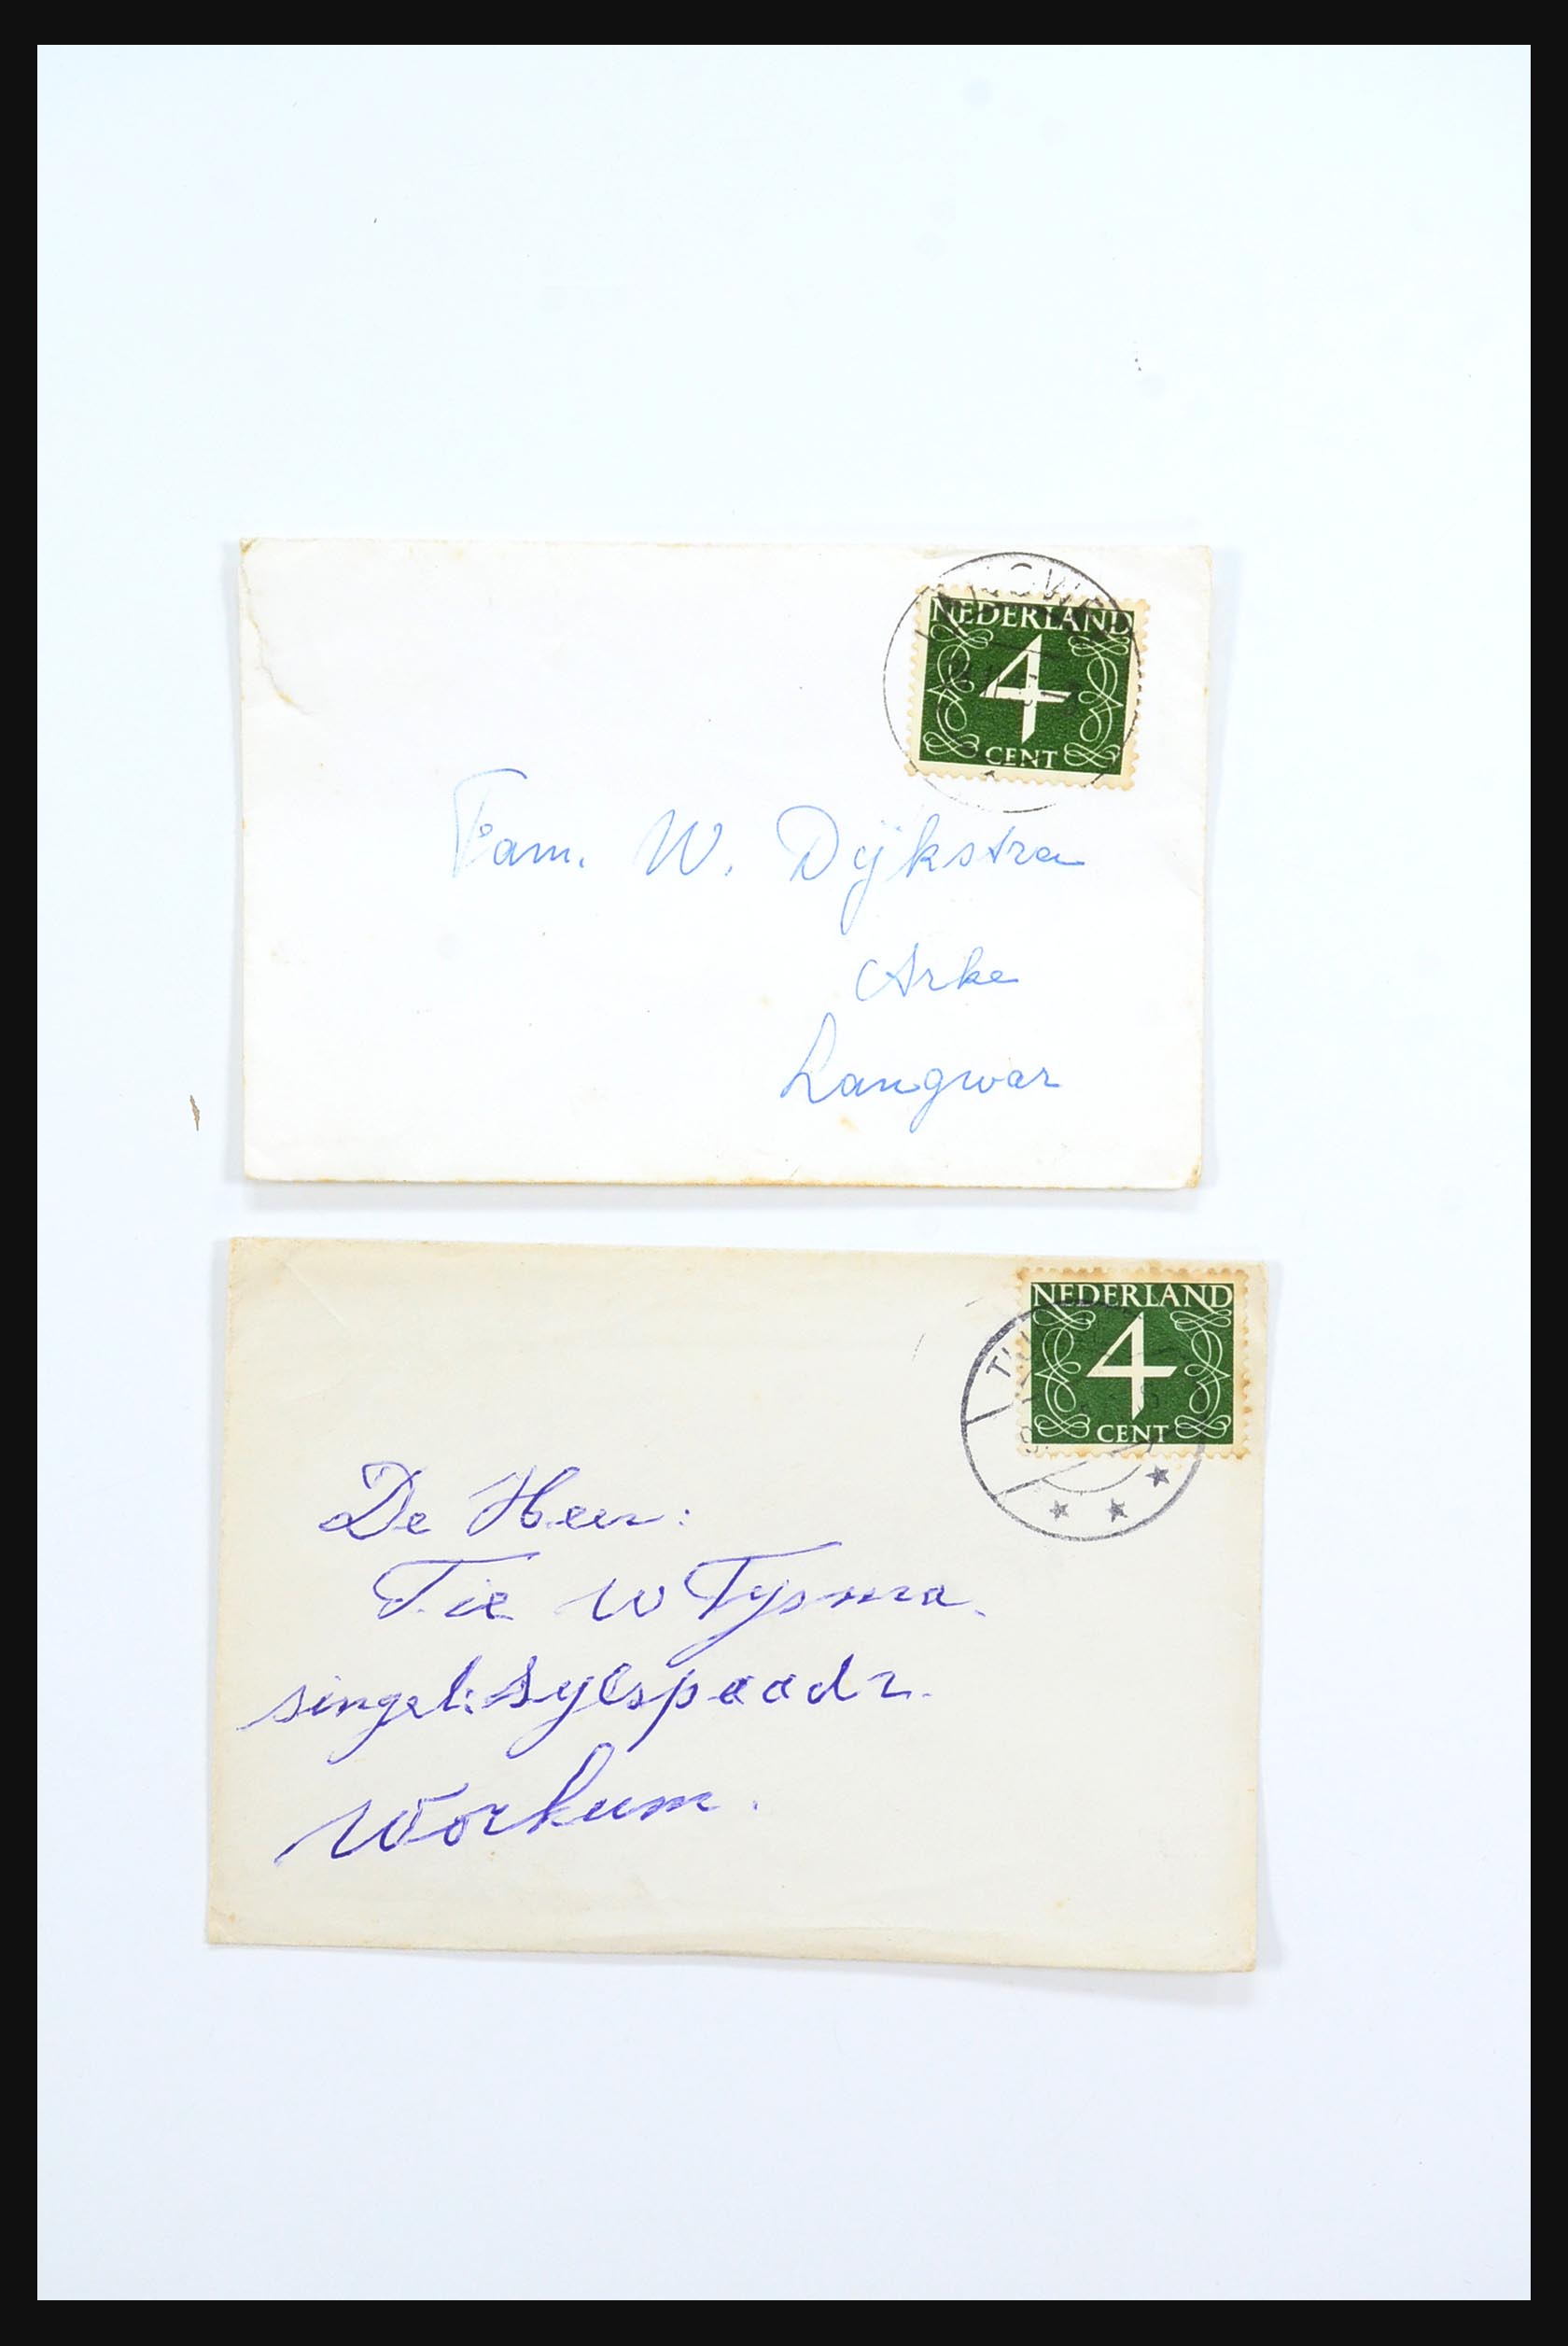 NEDERLAND
4
CENT
Fam. W. Dijkstra
Arke
Langwar
NEDERLAND
4
CENT
De Heer:
Tie W Tysma.
singel: Sylspaad 2.
Workum.